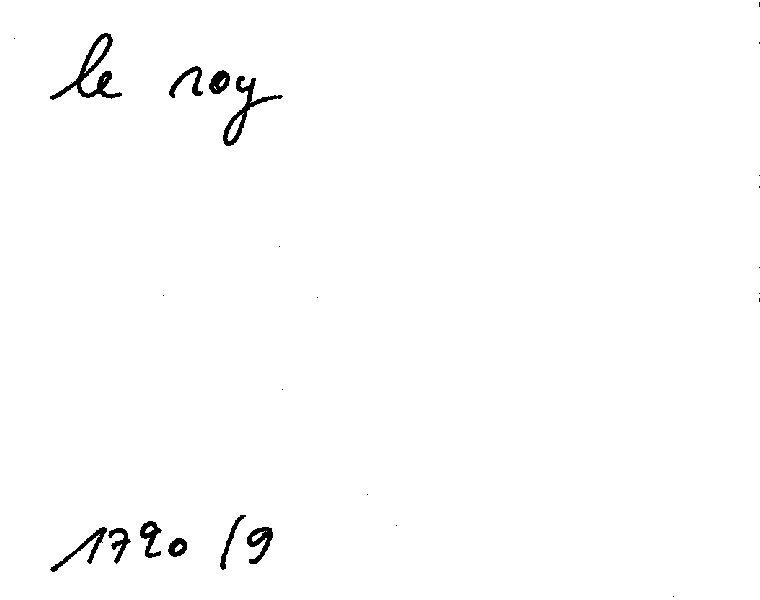 le roy
1790 /9